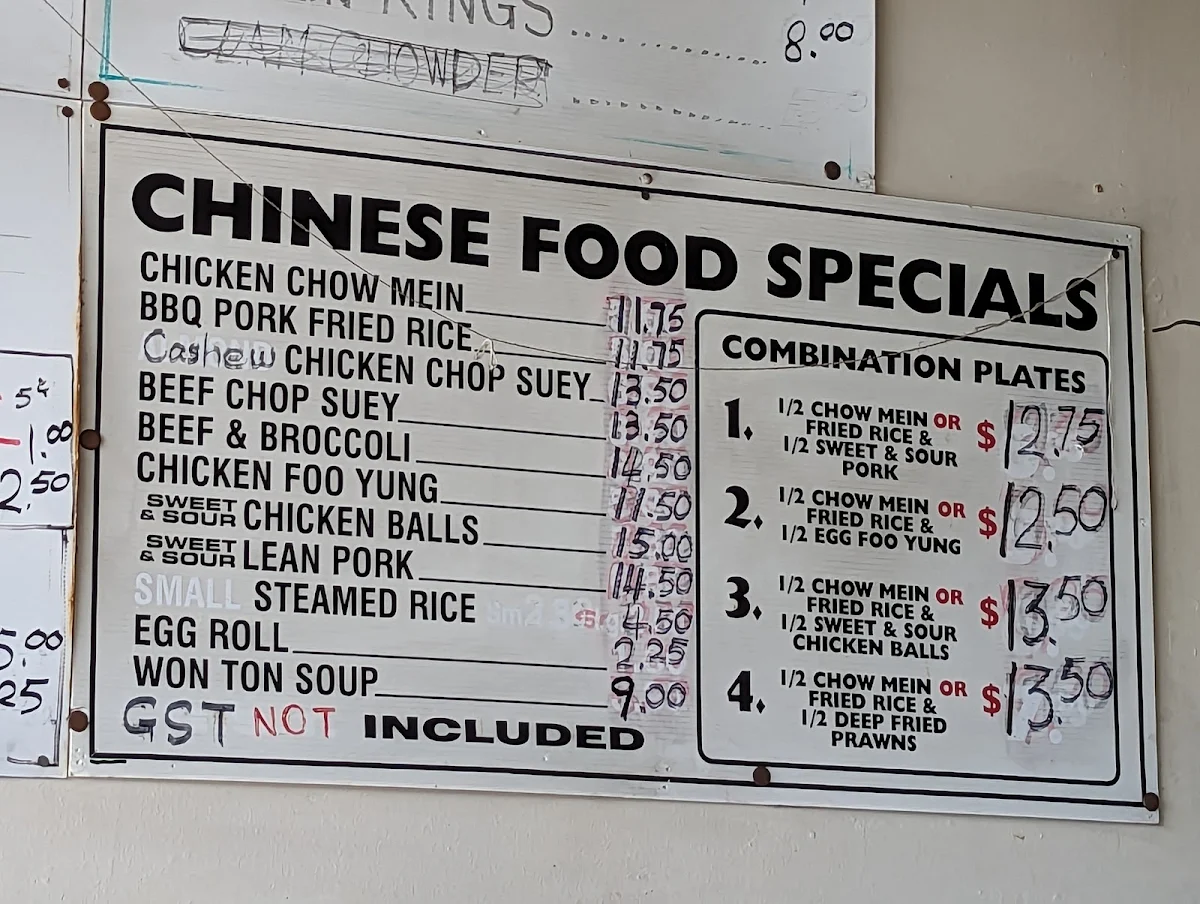 RINGS ........................ 8.00
CLAM CHOWDER ........................
5¢
1.00
2.50
5.00
25
CHINESE FOOD SPECIALS
CHICKEN CHOW MEIN 11.75
BBQ PORK FRIED RICE 11.75
Cashew CHICKEN CHOP SUEY 13.50
BEEF CHOP SUEY 13.50
BEEF & BROCCOLI 14.50
CHICKEN FOO YUNG 11.50
SWEET & SOUR CHICKEN BALLS 15.00
SWEET & SOUR LEAN PORK 14.50
SMALL STEAMED RICE 4.50
EGG ROLL 2.25
WON TON SOUP 9.00
GST NOT INCLUDED
COMBINATION PLATES
1. 1/2 CHOW MEIN OR
FRIED RICE &
1/2 SWEET & SOUR
PORK
$12.75
2. 1/2 CHOW MEIN OR
FRIED RICE &
1/2 EGG FOO YUNG
$12.50
3. 1/2 CHOW MEIN OR
FRIED RICE &
1/2 SWEET & SOUR
CHICKEN BALLS
$13.50
4. 1/2 CHOW MEIN OR
FRIED RICE &
1/2 DEEP FRIED
PRAWNS
$13.50